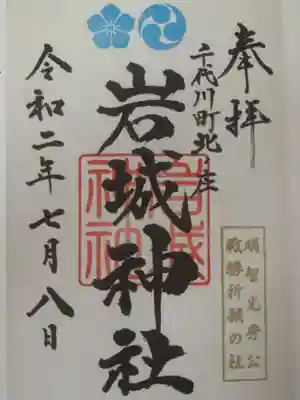 奉拝
千代川町北ノ庄
岩城神社
令和二年七月八日
岩城
神社
明智光秀公
戦勝祈願の社